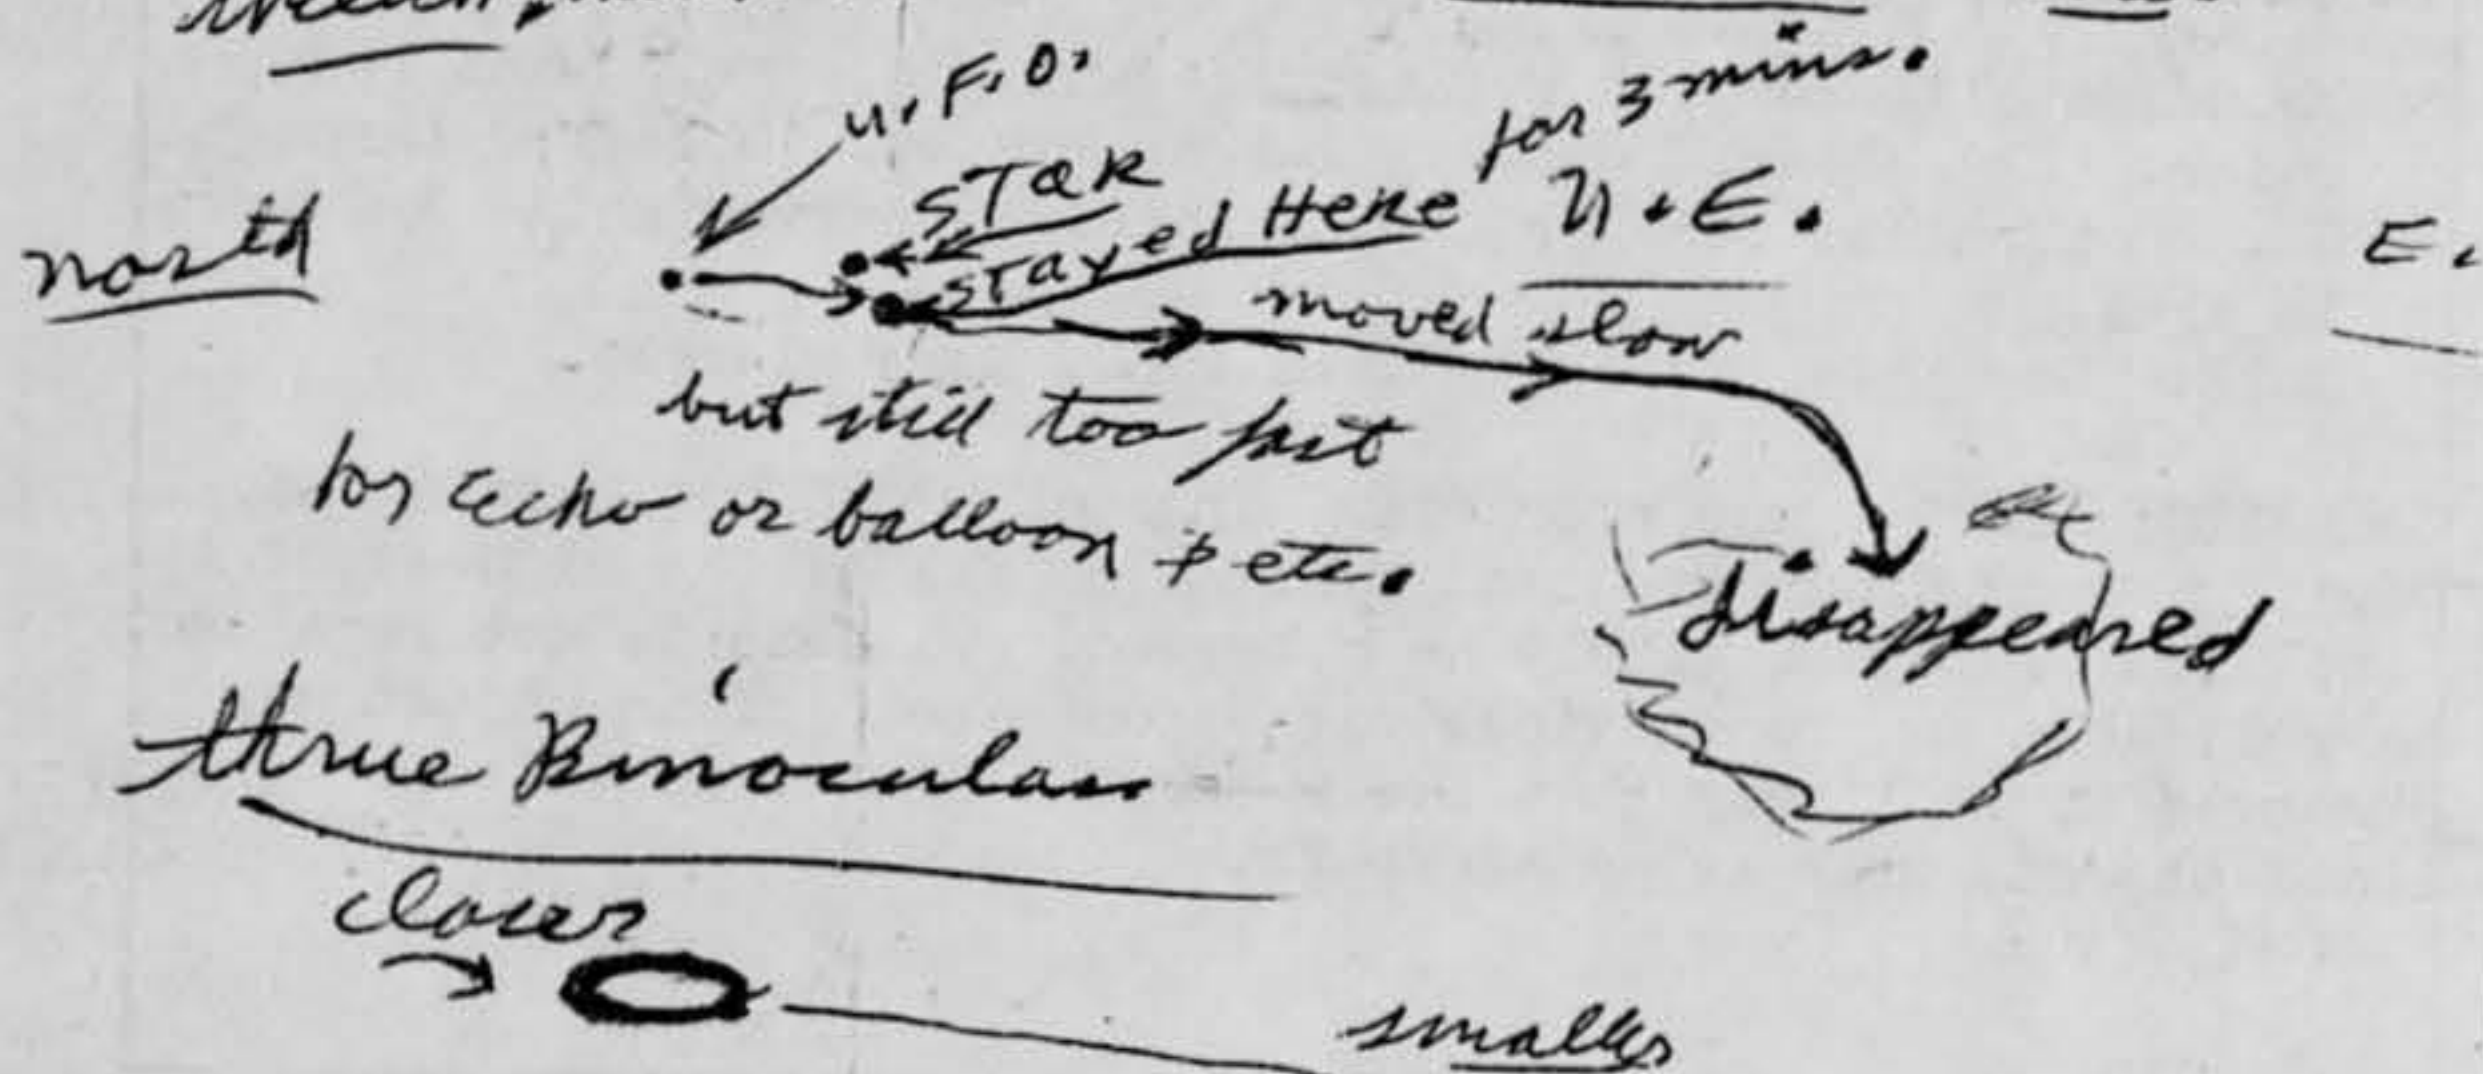 U.F.O.
for 3 mins.
STAR
Stayed Here
N.E.
north
E.
moved slow
but still too fast
for Echo or balloon & etc.
Disappeared
thrue Binoculars
closer
smaller